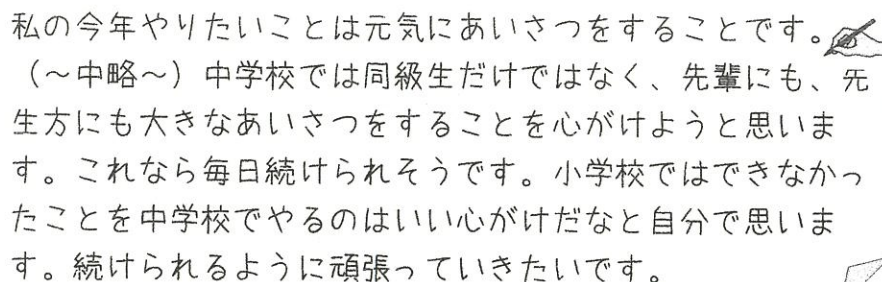 私の今年やりたいことは元気にあいさつをすることです。
（～中略～）中学校では同級生だけではなく、先輩にも、先
生方にも大きなあいさつをすることを心がけようと思いま
す。これなら毎日続けられそうです。小学校ではできなかっ
たことを中学校でやるのはいい心がけだなと自分で思いま
す。続けられるように頑張っていきたいです。